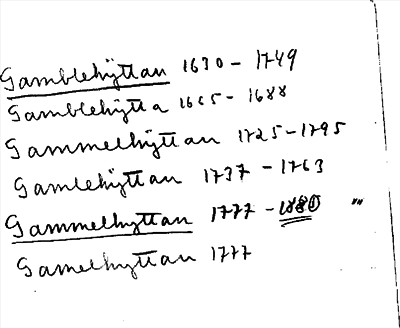 Gamblehÿttan 1630 - 1749
Gamblehÿtta 1665 - 1688
Gammelhÿttan 1725 - 1795
Gamlehÿttan 1737 - 1763
Gammelhyttan 1777 - 1880 "
Gamelhyttan 1777